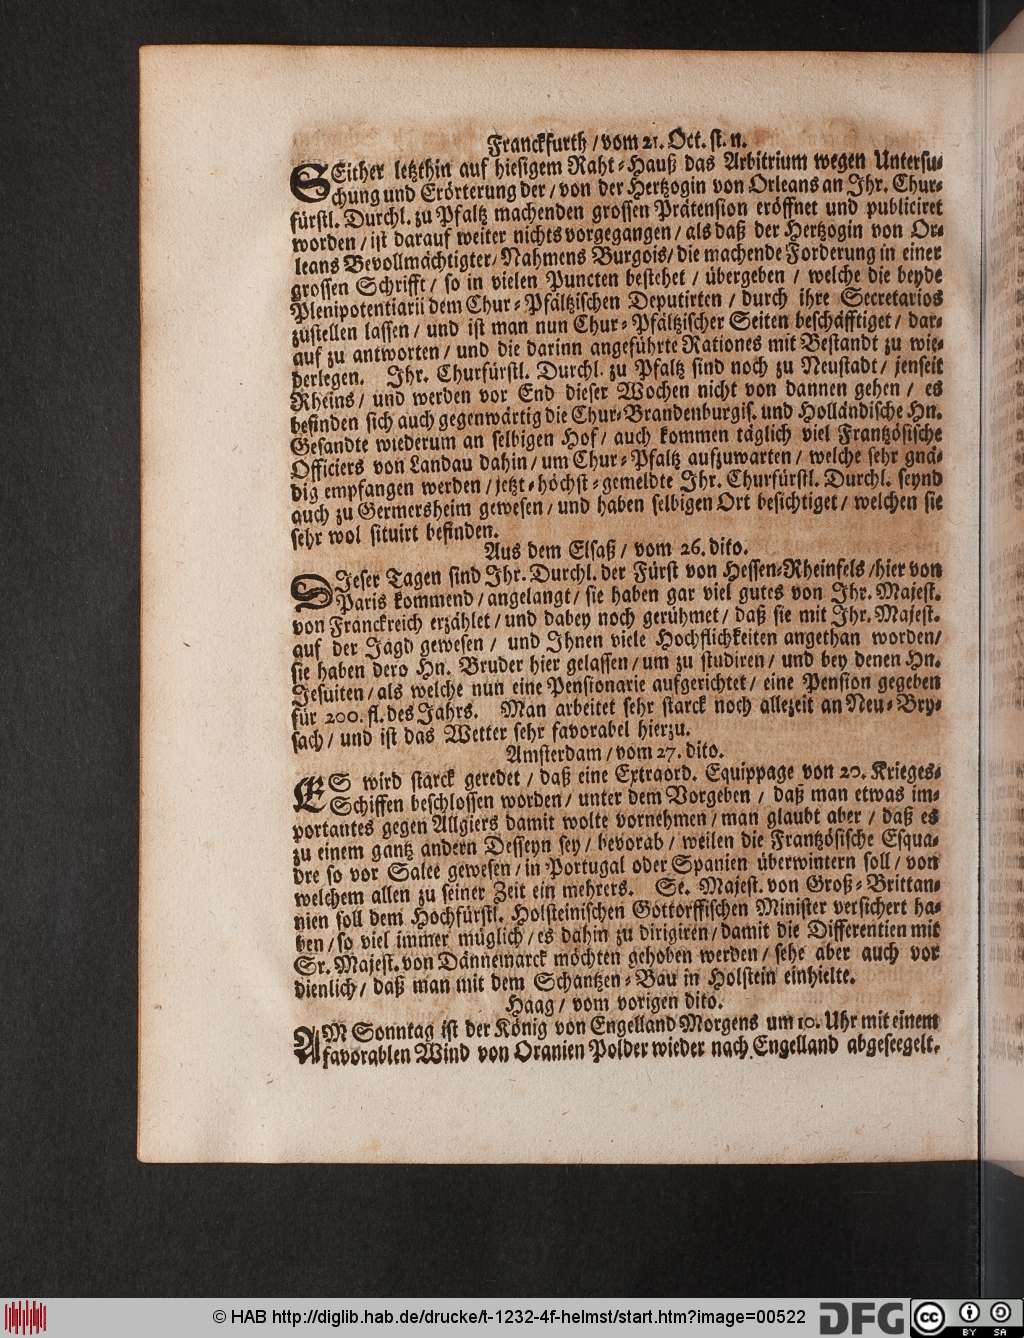 Franckfurth / vom 21. Oct. st. n.
SEither letzthin auf hiesigem Raht-Hauß das Arbitrium wegen Untersu-
chung und Erörterung der / von der Hertzogin von Orleans an Ihr. Chur-
fürstl. Durchl. zu Pfaltz machenden grossen Prätension eröffnet und publiciret
worden / ist darauf weiter nichts vorgegangen / als daß der Hertzogin von Or-
leans Bevollmächtigter / Nahmens Burgois / die machende Forderung in einer
grossen Schrifft / so in vielen Puncten bestehet / übergeben / welche die beyde
Plenipotentiarii dem Chur-Pfältzischen Deputirten / durch ihre Secretarios
zustellen lassen / und ist man nun Chur-Pfältzischer Seiten beschäfftiget / dar-
auf zu antworten / und die darinn angeführte Rationes mit Bestandt zu wie-
derlegen. Ihr. Churfürstl. Durchl. zu Pfaltz sind noch zu Neustadt / jenseit
Rheins / und werden vor End dieser Wochen nicht von dannen gehen / es
befinden sich auch gegenwärtig die Chur-Brandenburgis. und Holländische Hn.
Gesandte wiederum an selbigen Hof / auch kommen täglich viel Frantzösische
Officiers von Landau dahin / um Chur-Pfaltz aufzuwarten / welche sehr gnä-
dig empfangen werden / jetzt-höchst-gemeldte Ihr. Churfürstl. Durchl. seynd
auch zu Germersheim gewesen / und haben selbigen Ort besichtiget / welchen sie
sehr wol situirt befinden.
Aus dem Elsaß / vom 26. dito.
DIeser Tagen sind Ihr. Durchl. der Fürst von Hessen-Rheinfels / hier von
Paris kommend / angelangt / sie haben gar viel gutes von Ihr. Majest.
von Franckreich erzählet / und dabey noch gerühmet / daß sie mit Ihr. Majest.
auf der Jagd gewesen / und Ihnen viele Hochflichkeiten angethan worden /
sie haben dero Hn. Bruder hier gelassen / um zu studiren / und bey denen Hn.
Jesuiten / als welche nun eine Pensionarie aufgerichtet / eine Pension gegeben
für 200. fl. des Jahrs. Man arbeitet sehr starck noch allezeit an Neu-Bry-
sach / und ist das Wetter sehr favorabel hierzu.
Amsterdam / vom 27. dito.
ES wird starck geredet / daß eine Extraord. Equippage von 20. Krieges-
Schiffen beschlossen worden / unter dem Vorgeben / daß man etwas im-
portantes gegen Allgiers damit wolte vornehmen / man glaubt aber / daß es
zu einem gantz andern Desseyn sey / bevorab / weilen die Frantzösische Esqua-
dre so vor Salee gewesen / in Portugal oder Spanien überwintern soll / von
welchem allen zu seiner Zeit ein mehrers. Se. Majest. von Groß-Brittan-
nien soll dem Hochfürstl. Holsteinischen Gottorffischen Minister versichert ha-
ben / so viel immer müglich / es dahin zu dirigiren / damit die Differentien mit
Sr. Majest. von Dännemarck möchten gehoben werden / sehe aber auch vor
dienlich / daß man mit dem Schantzen-Bau in Holstein einhielte.
Haag / vom vorigen dito.
AM Sonntag ist der König von Engelland Morgens um 10. Uhr mit einem
favorablen Wind von Oranien Polder wieder nach Engelland abgeseegelt.
© HAB http://diglib.hab.de/drucke/t-1232-4f-helmst/start.htm?image=00522
DFG
cc BY SA